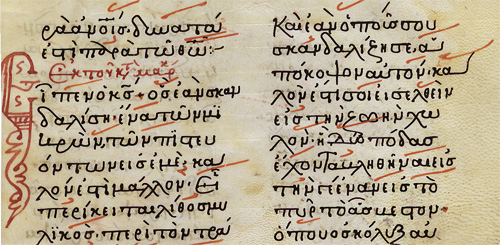 ρὰ ἀνοῖς, δυνατὰ
ἐστι παρὰ τῶ θῶ:-
Εἶπεν ὁ κς· ὃς ἐὰν σκαν
δαλίση ἕνα τῶν μι
κρῶν τῶν πιστευ
όντων εἰς ἐμὲ, κα
λόν ἐστι μᾶλλον· εἰ
περίκειται λίθος μυ
λικὸς περὶ τὸν τρά
Καὶ ἐὰν ὁ ποῦς σου
σκανδαλίζη σε, ἀ
πόκοψον αὐτόν· κα
λόν ἐστί σοι εἰσελθεῖν
εἰς τὴν ζωὴν χω
λὸν ἢ δύο πόδας
ἔχοντα βληθῆναι εἰς
τὴν γέενναν εἰς τὸ
πῦρ τὸ ἄσβεστον·
ὅπου ὁ σκώληξ αὐ